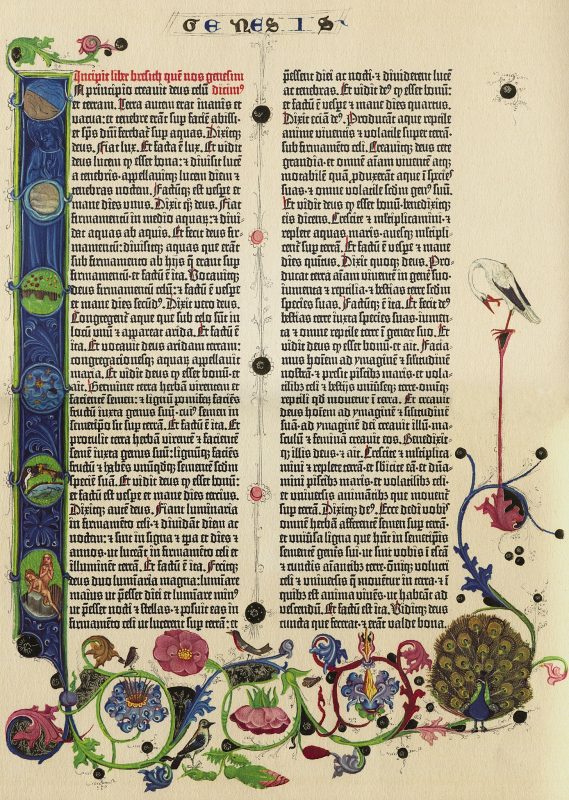 GENESIS
Incipit liber bresith quẽ nos genesim
IN principio creavit deus celũ dicim⁹
et terram. Terra autem erat inanis et
vacua: et tenebre erãt sup faciẽ abissi:
et spũs dñi ferebat̃ sup aquas. Dixitq̃
deus. Fiat lux. Et facta ẽ lux. Et vidit
deus lucem q̃ esset bona: et divisit lucẽ
a tenebris · appellavitq̃ lucem diem et
tenebras noctem. Factũq̃ est vespe et
mane dies unus. Dixit q̃ deus. Fiat
firmamentũ in medio aquaꝝ: et divi-
dat aquas ab aquis. Et fecit deus fir-
mamentũ: divisitq̃ aquas que erãt
sub firmamento ab hijs q̃ erant sup
firmamentũ: et factũ ẽ ita. Vocavitq̃
deus firmamentũ celũ: et factũ ẽ vespe
et mane dies secũd⁹. Dixit vero deus.
Congregent̃ aque que sub celo sũt in
locũ unũ et appareat arida. Et factũ ẽ
ita. Et vocavit deus aridam terram:
congregacionesq̃ aquaꝝ appellavit
maria. Et vidit deus q̃ esset bonũ · et
ait. Germinet terra herbã virentem et
facientẽ semen: et lignũ pomifeꝝ faciẽs
fructũ iuxta genus suũ · cui⁹ semen in
semetipso sit sup terrã. Et factũ ẽ ita. Et
protulit terra herbã virentẽ et facientẽ
semẽ iuxta genus suũ: lignũq̃ faciẽs
fructũ et habẽs unũqdq̃ sementẽ scdm
speciẽ suã. Et vidit deus q̃ esset bonũ:
et factũ est vespe et mane dies tercius.
Dixitq̃ autẽ deus. Fiant luminaria
in firmamẽto celi · et dividãt diem ac
noctem: et sint in signa et tpa et dies et
annos · ut luceãt in firmamẽto celi et
illuminẽt terrã. Et factũ ẽ ita. Fecitq̃
deus duo luminaria magna: luminare
maius ut pesset diei et luminare min⁹
ut pesset nocti et stellas · et posuit eas in
firmamẽto celi ut lucerent sup terrã: et
pessent diei ac nocti · et dividerent lucẽ
ac tenebras. Et vidit de⁹ q̃ esset bonũ:
et factũ ẽ vespe et mane dies quartus.
Dixit eciã de⁹. Producãt aque reptile
anime viventis et volatile super terrã ·
sub firmamẽto celi. Creavitq̃ deus cete
grandia · et omnẽ aĩam viventẽ atq̃
motabilẽ quã pduxerãt aque ĩ species
suas · et omne volatile scdm gen⁹ suũ.
Et vidit deus q̃ esset bonũ · benedixitq̃
eis dicens. Crescite et multiplicamini · et
replete aquas maris · avesq̃ multipli-
cent̃ sup terrã. Et factũ ẽ vespe et mane
dies quintus. Dixit quoq̃ deus. Pro-
ducat terra aĩam viventẽ in genẽ suo ·
iumenta et reptilia · et bestias terre scdm
species suas. Factũq̃ ẽ ita. Et fecit de⁹
bestias terre iuxta species suas · iumen-
ta et omne reptile terre ĩ genere suo. Et
vidit deus q̃ esset bonũ · et ait. Facia-
mus hoĩem ad ymaginẽ et silitudinẽ
nostrã · et presit piscibs maris · et vola-
tilibs celi et bestijs univseq̃ terre · omniq̃
reptili qd movetur ĩ terra. Et creavit
deus hoĩem ad ymaginẽ et silitudinẽ
suã · ad ymaginẽ dei creavit illũ · ma-
sculũ et feminã creavit eos. Benedixit-
q̃ illis deus · et ait. Crescite et multiplica-
mini et replete terrã · et sbicite eã · et dña-
mini piscibs maris · et volatilibs celi ·
et universis animãtibs que movent̃
sup terrã. Dixitq̃ de⁹. Ecce dedi vobis
omnẽ herbã afferentẽ semen sup terrã ·
et univsa ligna que hñt in semetipis
sementẽ genis sui · ut sint vobis ĩ escã
et cunctis aĩantibs terre · omniq̃ volucri
celi et universis q̃ movent̃ in terra · et ĩ
quibs est anima vivẽs · ut habeãt ad
vescendũ. Et factũ est ita. Viditq̃ deus
cuncta que fecerat · et erãt valde bona.